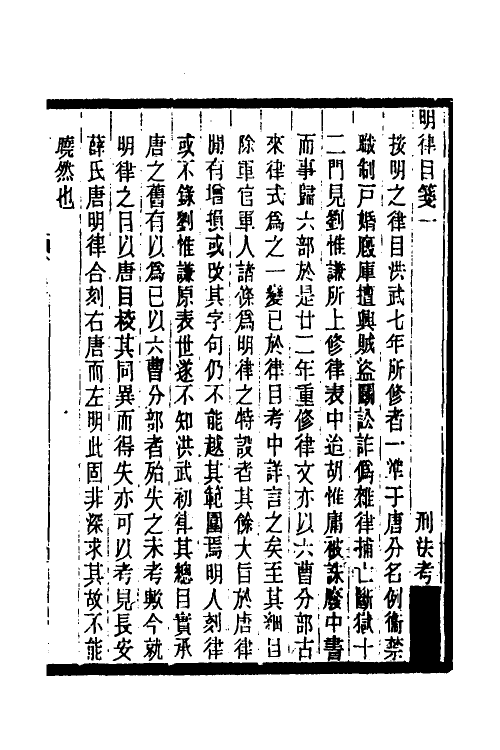 明律目箋一　刑法考
按明之律目洪武七年所修者一準于唐分名例衞禁
職制戶婚廄庫擅興賊盜鬬訟詐僞雜律捕亡斷獄十
二門見劉惟謙所上修律表中迨胡惟庸被誅廢中書
而事歸六部於是廿二年重修律文亦以六曹分部古
來律式爲之一變已於律目考中詳言之矣至其細目
除軍官軍人諸條爲明律之特設者其餘大旨於唐律
閒有增損或改其字句仍不能越其範圍焉明人刻律
或不錄劉惟謙原表世遂不知洪武初律其總目實承
唐之舊有以爲已以六曹分部者殆失之未考歟今就
明律之目以唐目校其同異而得失亦可以考見長安
薛氏唐明律合刻右唐而左明此固非深求其故不能
曉然也